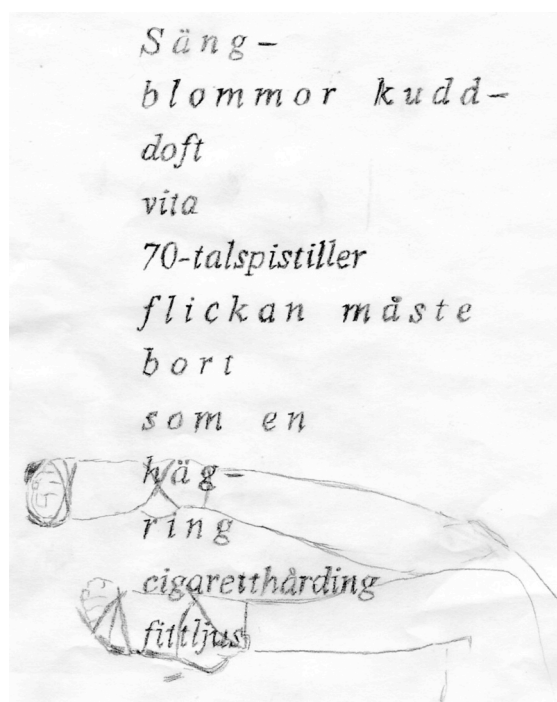 Säng-
blommor kudd-
doft
vita
70-talspistiller
flickan måste
bort
som en
häg-
ring
cigaretthårding
fittljus